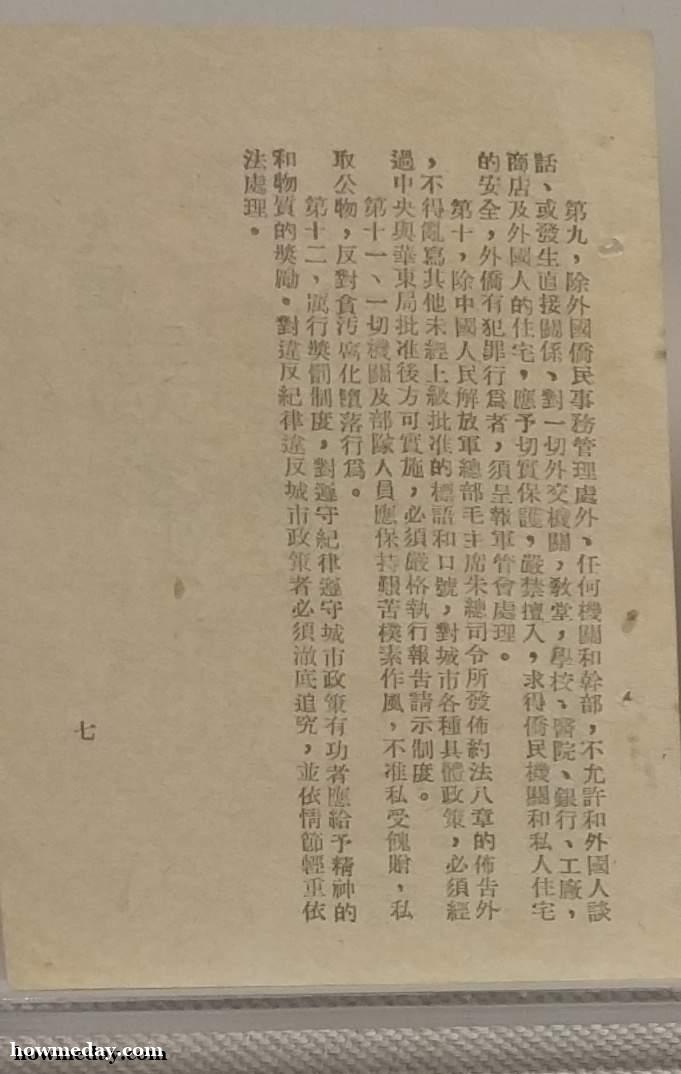 第九，除外國僑民事務管理處外、任何機關和幹部，不允許和外國人談
話、或發生直接關係、對一切外交機關，教堂，學校、醫院、銀行、工廠，
商店及外國人的住宅，應予切實保護，嚴禁擅入，求得僑民機關和私人住宅
的安全，外僑有犯罪行爲者，須呈報軍管會處理。
第十，除中國人民解放軍總部毛主席朱總司令所發佈約法八章的佈告外
，不得亂寫其他未經上級批准的標語和口號，對城市各種具體政策，必須經
過中央與華東局批准後方可實施，必須嚴格執行報告請示制度。
第十一、一切機關及部隊人員應保持艱苦樸素作風，不准私受餽贈，私
取公物，反對貪污腐化墮落行爲。
第十二，厲行獎罰制度，對遵守紀律遵守城市政策有功者應給予精神的
和物質的獎勵。對違反紀律違反城市政策者必須澈底追究，並依情節輕重依
法處理。
七
howmeday.com